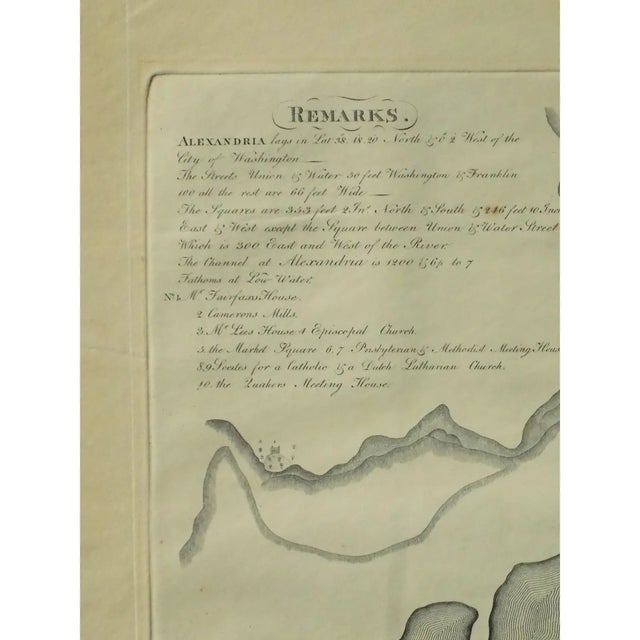 REMARKS.
ALEXANDRIA lays in Lat 38. 18. 20 North & 6' 2 West of the
City of Washington —
The Streets Union & Water 50 feet Washington & Franklin
100 all the rest are 66 feet Wide —
The Squares are 353 feet 2 Ins North & South & 246 feet 10 Inc
East & West except the Square between Union & Water Street
Which is 300 East and West of the River.
The Channel at Alexandria is 1200 & 6p to 7
Fathoms at Low Water.
No 1. Mr Fairfaxs House.
2 Camerons Mills.
3. Mr Lees House 4 Episcopal Church.
5. the Market Square 6, 7 Presbyterian & Methodist Meeting Hous
8,9 Scites for a Catholic & a Dutch Lutharian Church.
10. the Quakers Meeting House.